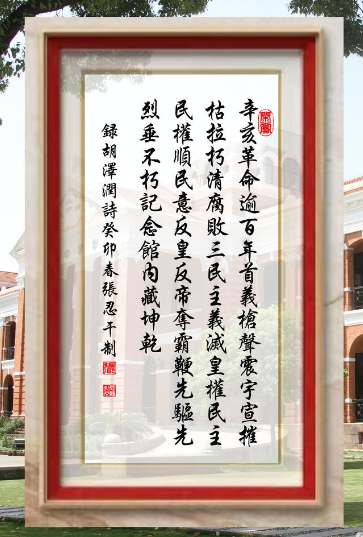 辛亥革命逾百年首義槍聲震宇宣摧
枯拉朽清腐敗三民主義滅皇權民主
民權順民意反皇反帝奪霸鞭先驅先
烈垂不朽記念館內藏坤乾
録胡澤潤詩癸卯春張忍干制